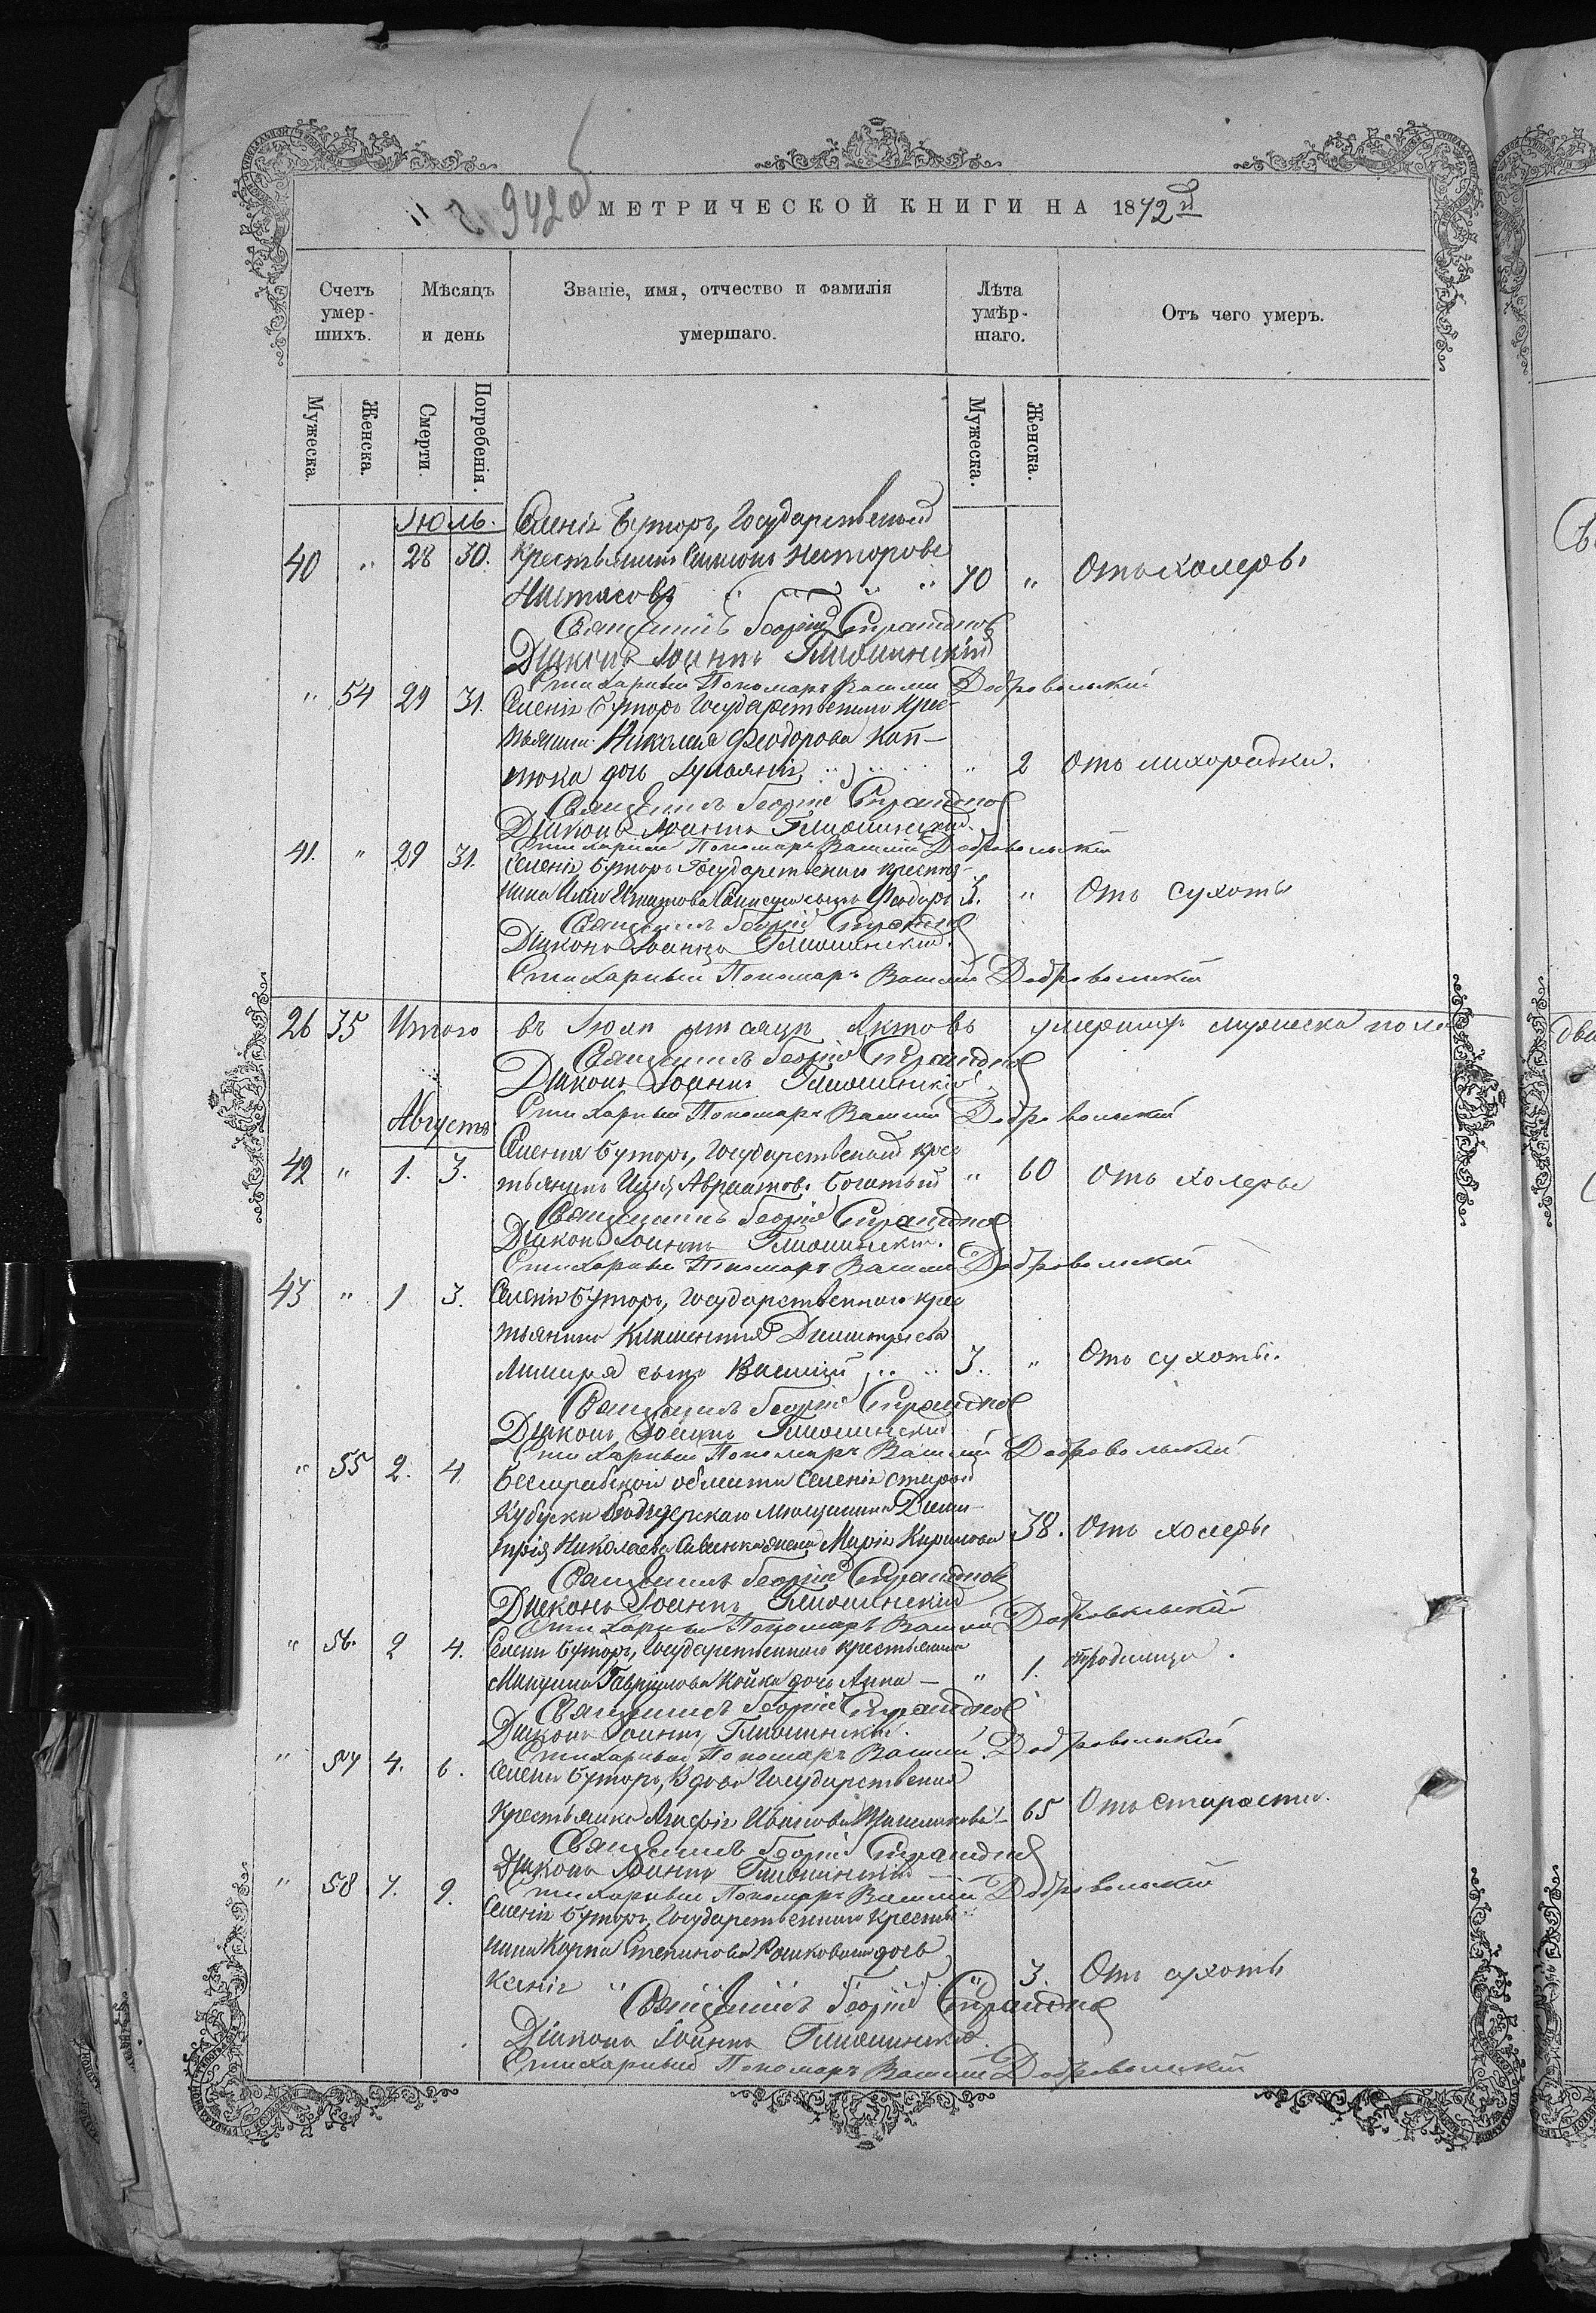 942об
МЕТРИЧЕСКОЙ КНИГИ НА 1872й
Счетъ умер-шихъ.
Мѣсяцъ и день
Званіе, имя, отчество и фамилія умершаго.
Лѣта умѣр-шаго.
Отъ чего умеръ.
Мужеска.
Женска.
Смерти.
Погребенія.
Мужеска.
Женска.
Іюль.
Селенія Буторъ, Государственный
40 " 28 30. крестьянинъ Симіонъ Несторовъ 70 " Отъ холеры
Священникъ Георгій
Діаконъ Іоаннъ
Стихарный Пономарь Василій Добровольскій
" 54 29 31. Селенія Буторъ Государственнаго крес-
тьянина Николая Феодорова Кап-
тюка дочь " 2 Отъ лихорадки.
Священникъ Георгій
Діаконъ Іоаннъ
Стихарный Пономарь Василій Добровольскій
41. " 29 31. Селенія Буторъ Государственнаго крестья-
нина сынъ Феодоръ 3. " Отъ сухоты
Священникъ Георгій
Діаконъ Іоаннъ
Стихарный Пономарь Василій Добровольскій
26 35 Итого въ Іюлѣ мѣсяцѣ Актовъ умершихъ мужеска пола
Священникъ Георгій
Діаконъ Іоаннъ
Стихарный Пономарь Василій Добровольскій
Августъ
Селенія Буторъ, Государственный крес-
42 " 1. 3. тьянинъ Илія Богатый " 60 Отъ холеры
Священникъ Георгій
Діаконъ Іоаннъ
Стихарный Пономарь Василій Добровольскій
43 " 1 3. Селенія Буторъ, Государственнаго крес-
тьянина Климентія Димитріева
сынъ Василій 3. " Отъ сухоты.
Священникъ Георгій
Діаконъ Іоаннъ
Стихарный Пономарь Василій Добровольскій
" 55 2. 4. Бессарабской области селенія старой
Кубуски мѣщанина Дими-
трія Николаева жена Марія Кирилова 38. Отъ холеры
Священникъ Георгій
Діаконъ Іоаннъ
Стихарный Пономарь Василій Добровольскій
" 56. 2 4. Селенія Буторъ, Государственнаго крестьянина
Гавріилова Койка дочь Анна " 1. Отъ родимца.
Священникъ Георгій
Діаконъ Іоаннъ
Стихарный Пономарь Василій Добровольскій
" 57 4. 6. Селенія Буторъ, Вдова Государственная
крестьянка Агафія Иванова 65 Отъ старости.
Священникъ Георгій
Діаконъ Іоаннъ
Стихарный Пономарь Василій Добровольскій
" 58 7. 9. Селенія Буторъ, Государственнаго крестья-
нина Карпа Степанова дочь
Ксенія " 3. Отъ сухоты
Священникъ Георгій
Діаконъ Іоаннъ
Стихарный Пономарь Василій Добровольскій